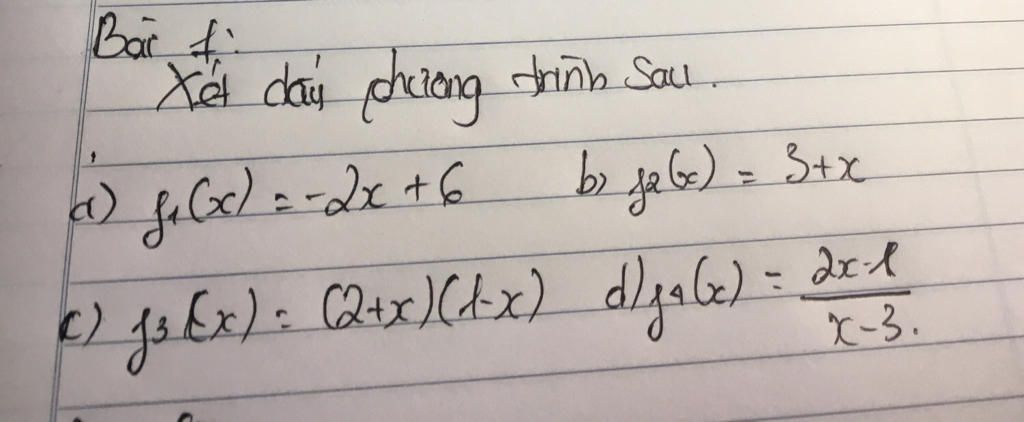 Bài 1:
Xét dấu phương trình sau.
a) f1(x) = -2x + 6 b) f2(x) = 3+x
c) f3(x) = (2+x)(1-x) d) f4(x) = (2x-1)/(x-3).